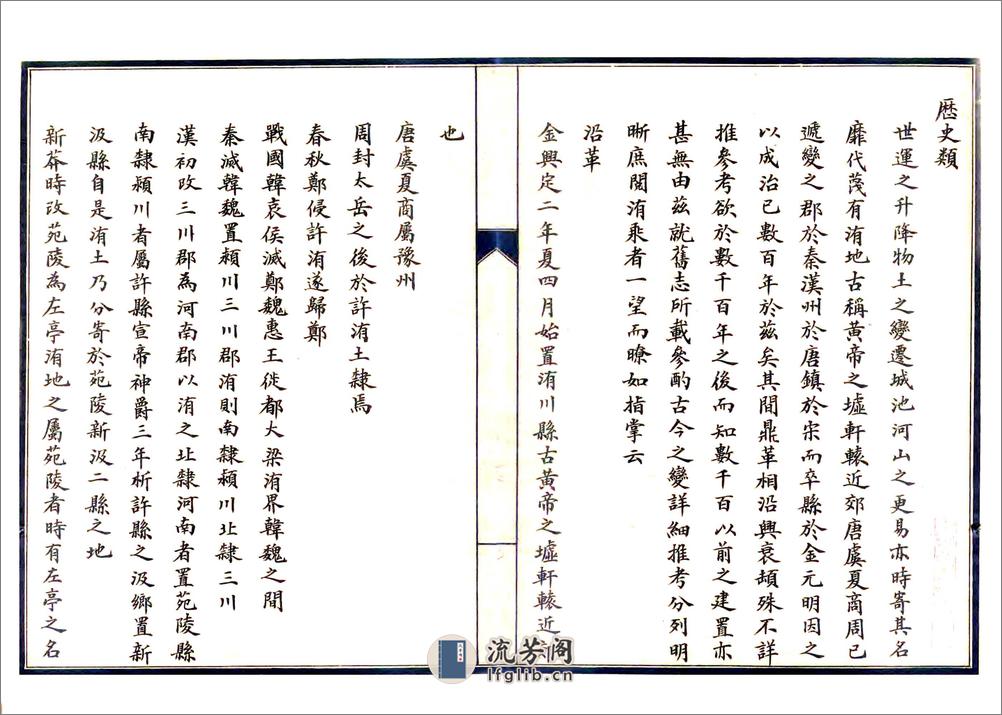 歷史類
世運之升降物土之變遷城池河山之更易亦時寄其名
靡代蔑有洧地古稱黃帝之墟軒轅近郊唐虞夏商周已
遞變之郡於秦漢州於唐鎮於宋而卒縣於金元明因之
以成治已數百年於茲矣其間鼎革相沿興衰頡殊不詳
推參考欲於數千百年之後而知數千百以前之建置亦
甚無由茲就舊志所載參酌古今之變詳細推考分列明
晰庶閱洧乘者一望而瞭如指掌云
沿革
金興定二年夏四月始置洧川縣古黃帝之墟軒轅近
也
唐虞夏商屬豫州
周封太岳之後於許洧土隸焉
春秋鄭侵許洧遂歸鄭
戰國韓哀侯滅鄭魏惠王徙都大梁洧界韓魏之間
秦滅韓魏置潁川三川郡洧則南隸潁川北隸三川
漢初改三川郡為河南郡以洧之北隸河南者置苑陵縣
南隸潁川者屬許縣宣帝神爵三年析許縣之汲鄉置新
汲縣自是洧土乃分寄於苑陵新汲二縣之地
新莽時改苑陵為左亭洧地之屬苑陵者時有左亭之名
流芳阁
lfglib.cn